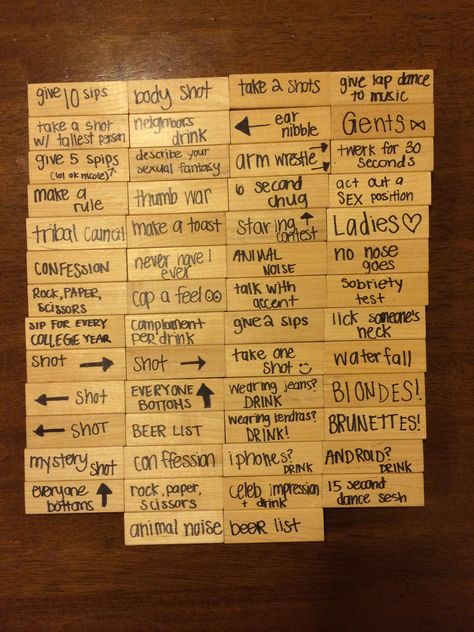 give 10 sips
body shot
take 2 shots
give lap dance
to music
take a shot
w/ tallest person
neighbors
drink
← ear
nibble
Gents
give 5 spips
(lol ok nicole)
describe your
sexual fantasy
arm wrestle →
twerk for 30
seconds
make a
rule
thumb war
6 second
chug
act out a
SEX position
tribal council
make a toast
staring ↑
contest
Ladies ♡
CONFESSION
never have I
ever
ANIMAL
NOISE
no nose
goes
ROCK, PAPER,
SCISSORS
cop a feel
talk with
accent
sobriety
test
SIP FOR EVERY
COLLEGE YEAR
complament
PER drink
give 2 sips
lick someone's
neck
shot →
shot →
take one
shot
waterfall
← shot
EVERYONE ↑
BOTTOMS
wearing jeans?
DRINK
BLONDES!
← SHOT
BEER LIST
wearing
DRINK!
BRUNETTES!
mystery shot
confession
iphones?
DRINK
ANDROID?
DRINK
everyone ↑
bottoms
rock, paper,
scissors
celeb impression
+ drink
15 second
dance sesh
animal noise
beer list